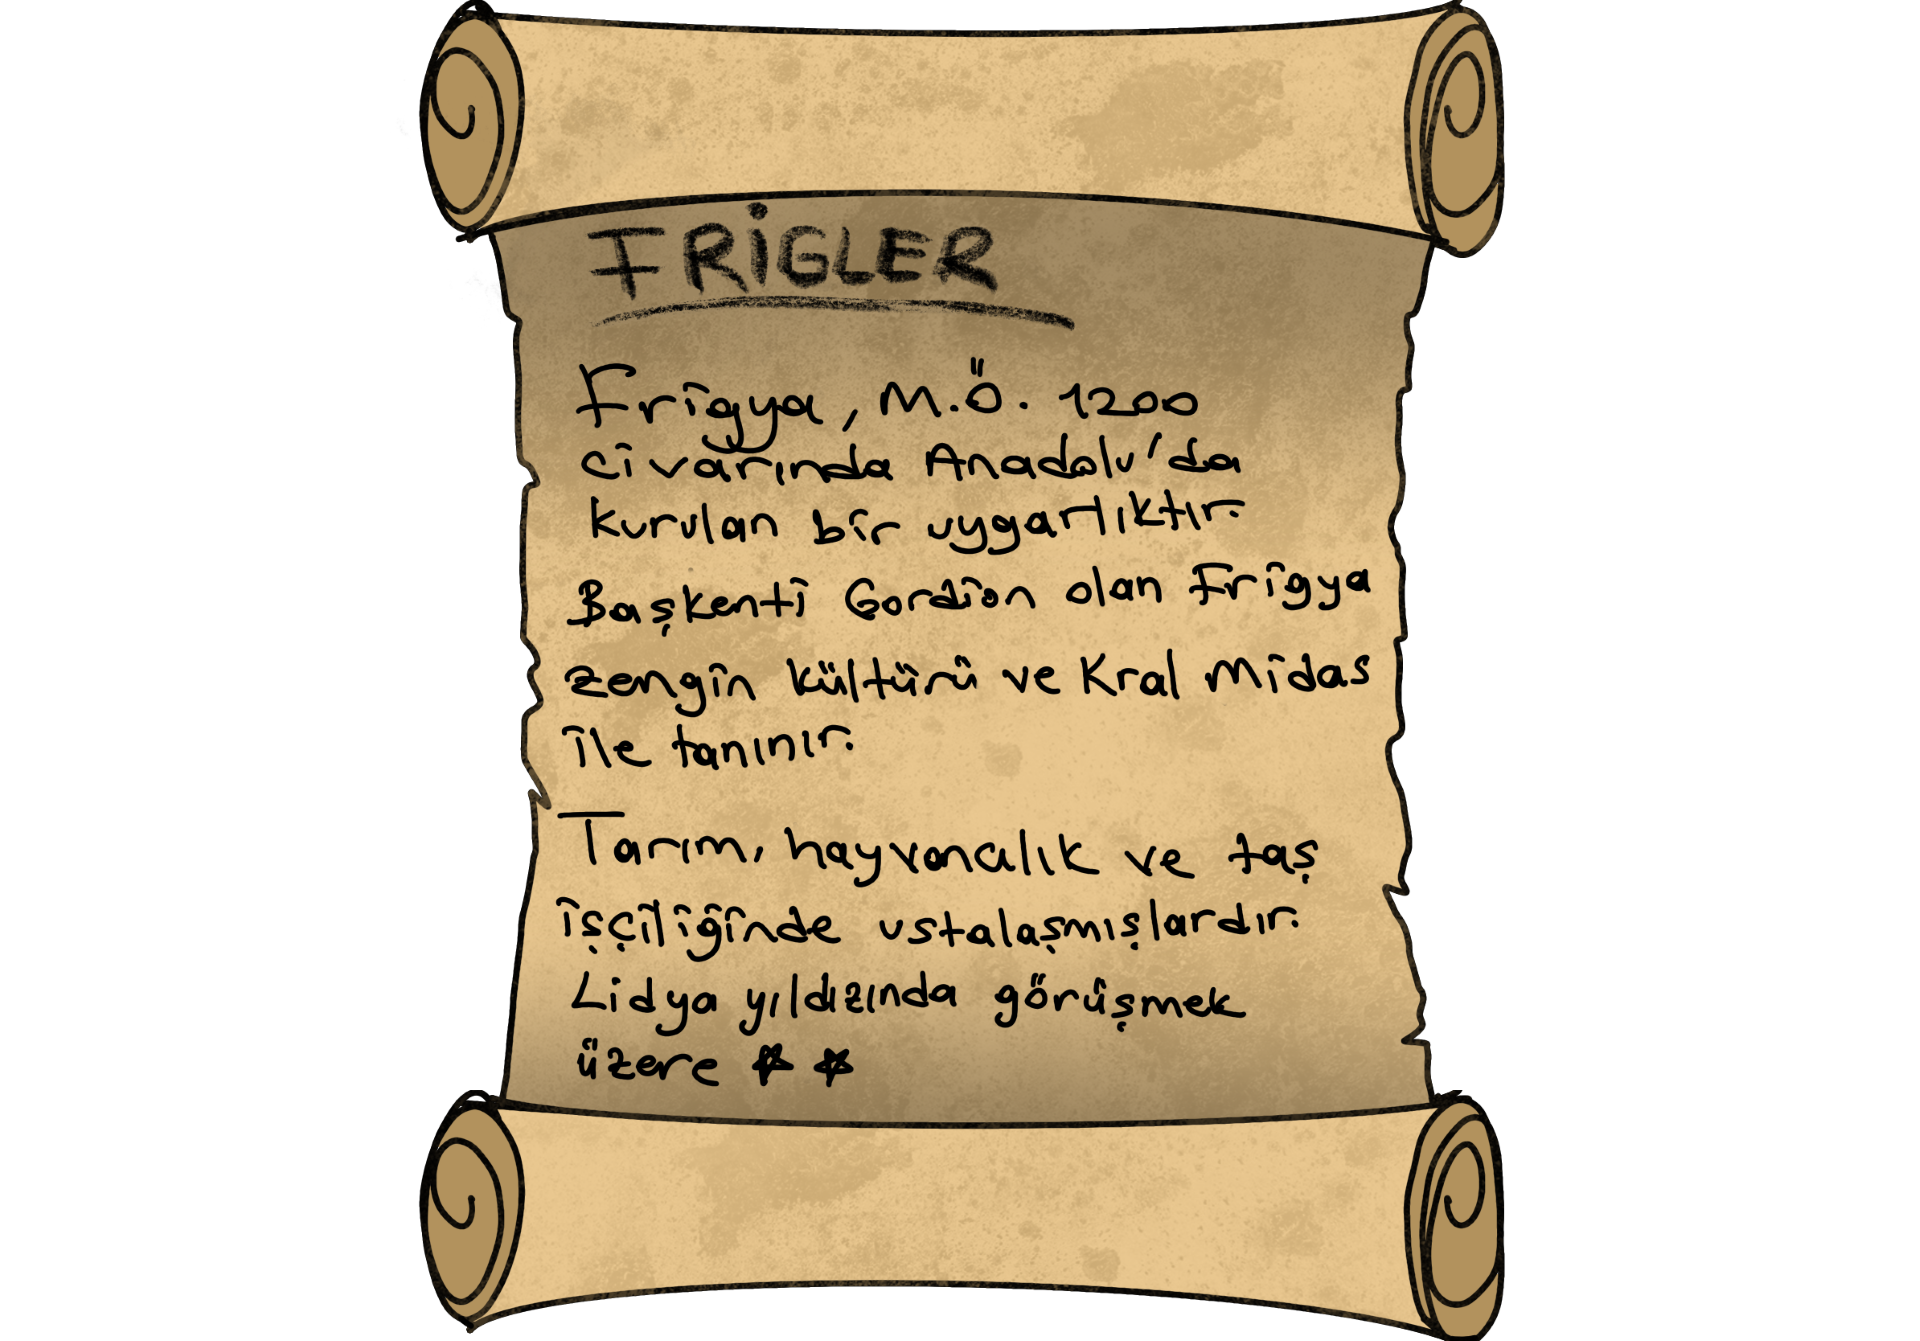 FRİGLER
Frigya, M.Ö. 1200
civarında Anadolu'da
kurulan bir uygarlıktır.
Başkenti Gordion olan Frigya
zengin kültürü ve Kral Midas
ile tanınır.
Tarım, hayvancılık ve taş
işçiliğinde ustalaşmışlardır.
Lidya yıldızında görüşmek
üzere ☆ ☆